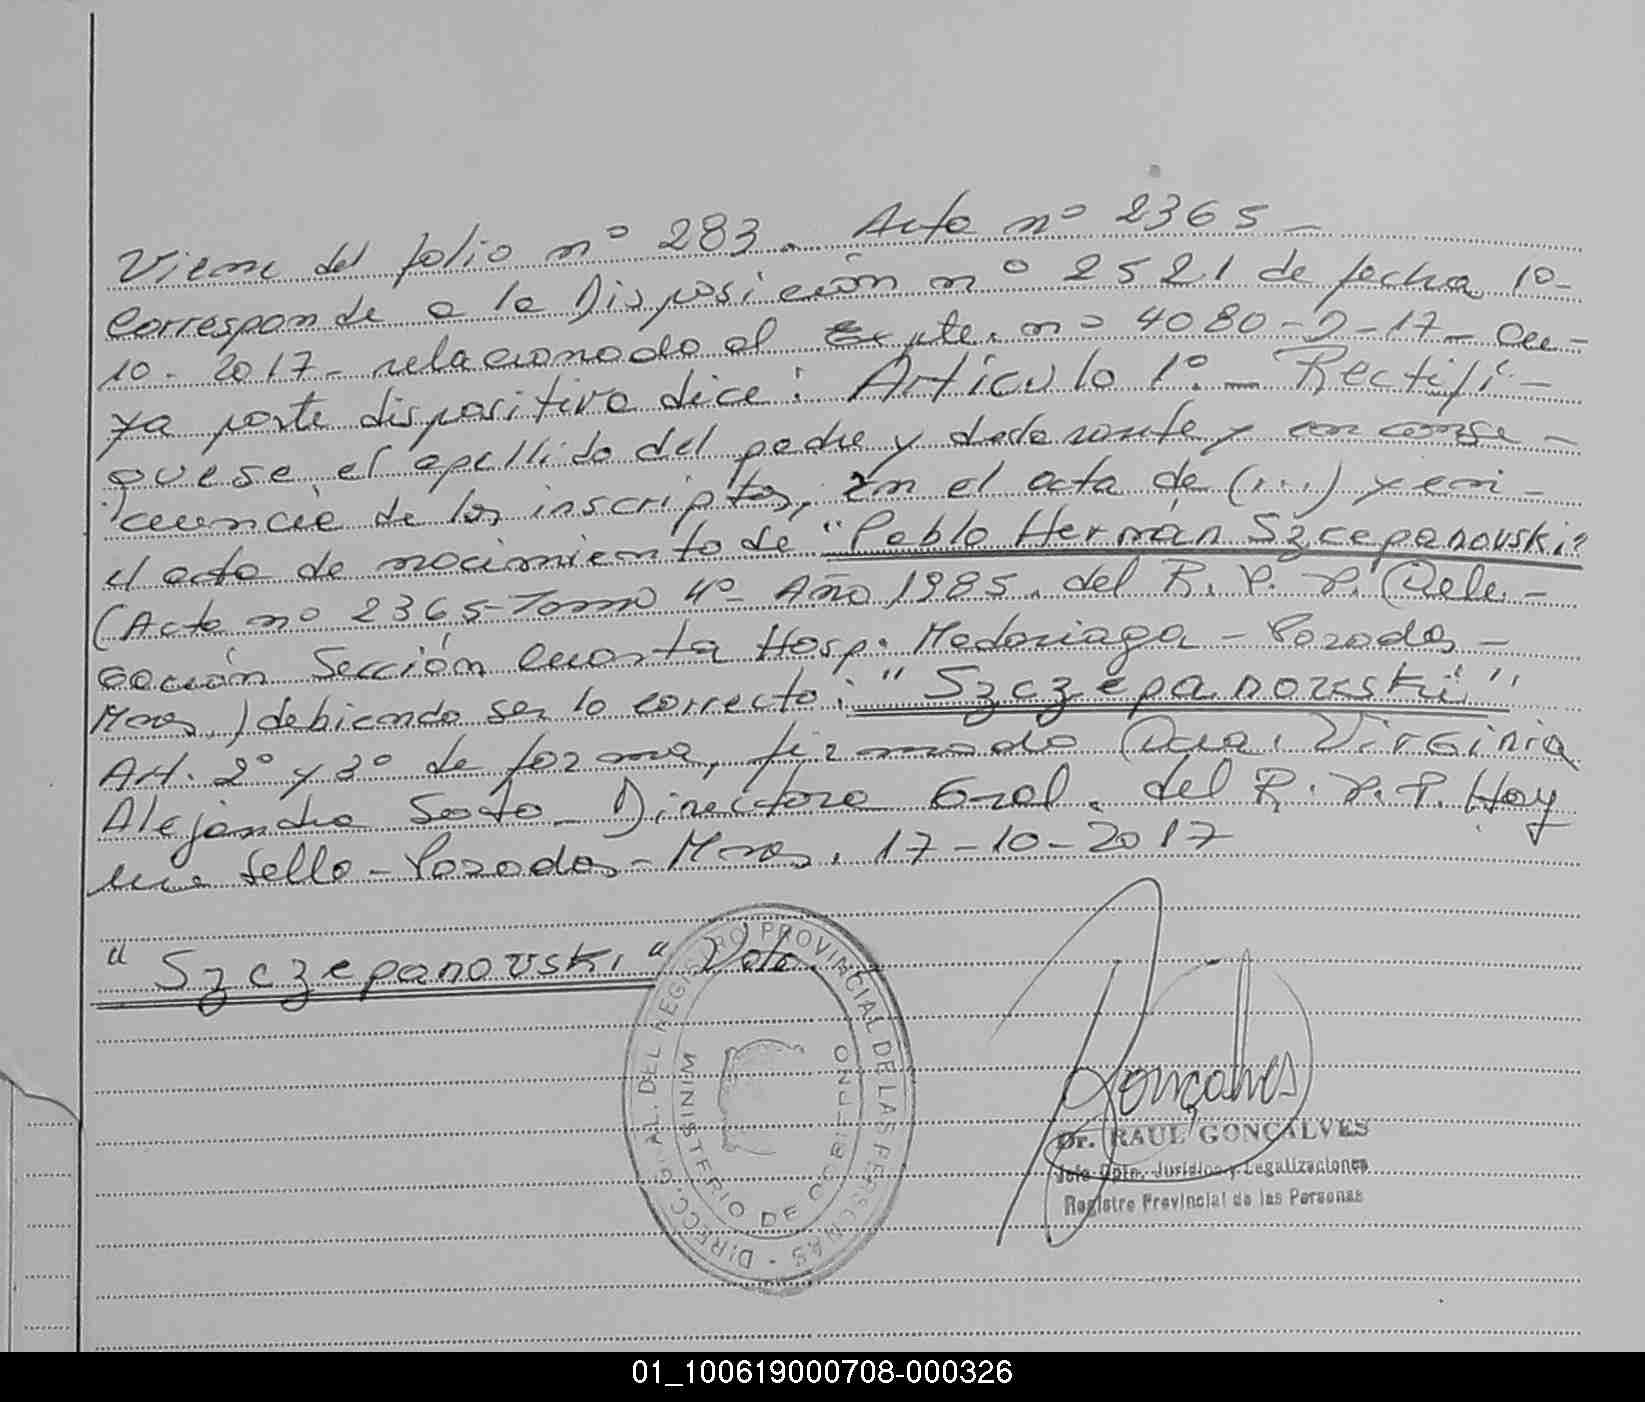 Viene del folio nº 283. Acta nº 2365 -
Corresponde a la Disposición nº 2521 de fecha 10-
10-2017- relacionado al Expte. nº 4080-D-17- Cu-
ya parte dispositiva dice: Articulo 1º- Rectifí-
quese el apellido del padre y declarante y en conse-
cuencia de los inscriptos, en el acta de (...) y en
el acta de nacimiento de "Pablo Hernán Szcepanouski"
(Acta nº 2365-Tomo 4º- Año 1985. del R. P. P. Dele-
gación Sección Cuarta Hosp. Madariaga - Posadas -
Mnes.) debiendo ser lo correcto: "Szczepanovski"
Art. 2º y 3º de forma, firmado Dra. Virginia
Alejandra Soto - Directora Gral. del R. P. P. Hay
un sello - Posadas - Mnes. 17-10-2017
"Szczepanovski" Vale.
DIRECC. GRAL. DEL REGISTRO PROVINCIAL DE LAS PERSONAS -
MINISTERIO DE GOBIERNO
Gonçalves
Dr. RAUL GONÇALVES
Jefe Dpto. Jurídico y Legalizaciones
Registro Provincial de las Personas
01_100619000708-000326